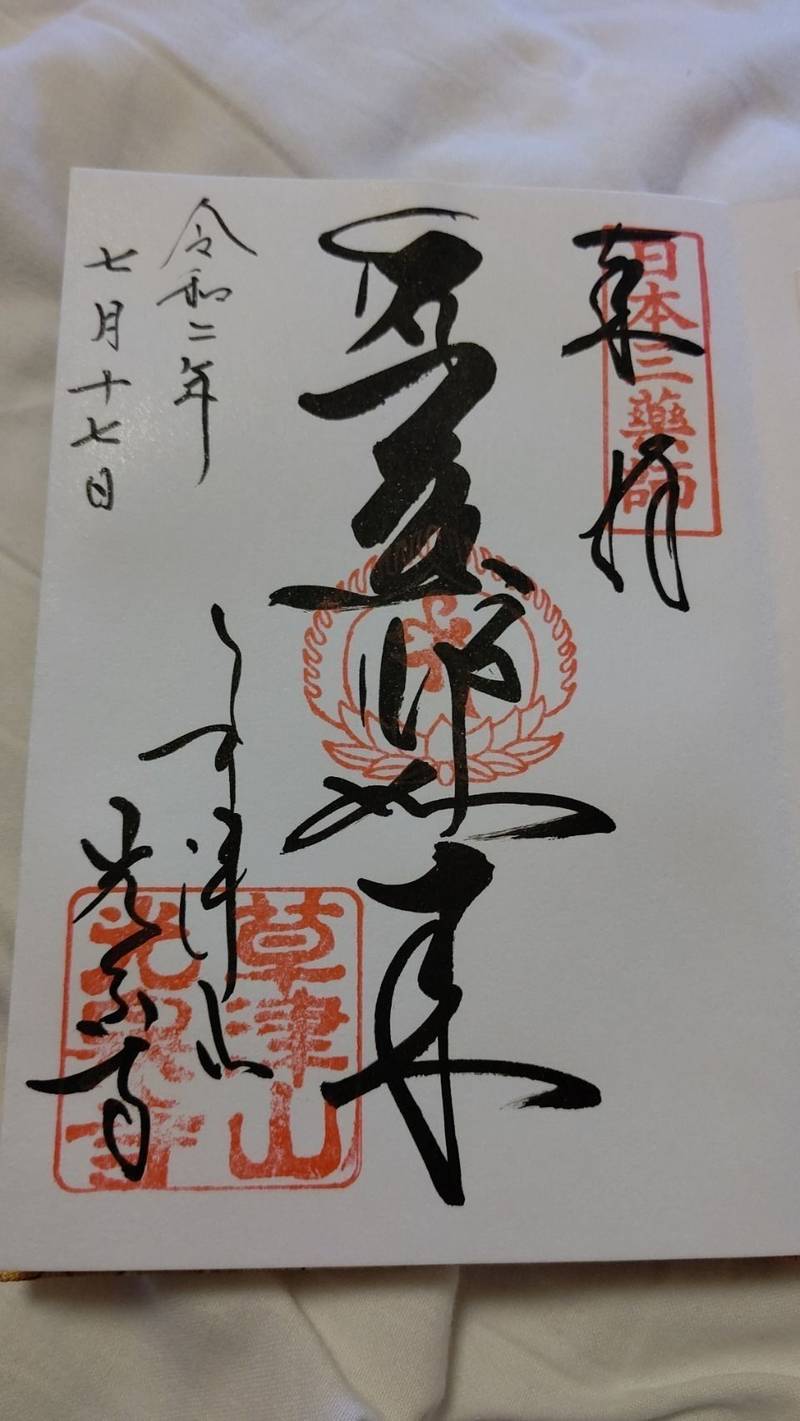 奉拝
日本三藥師
薬師如来
草津山
光泉寺
草津山
光泉寺
令和二年
七月十七日